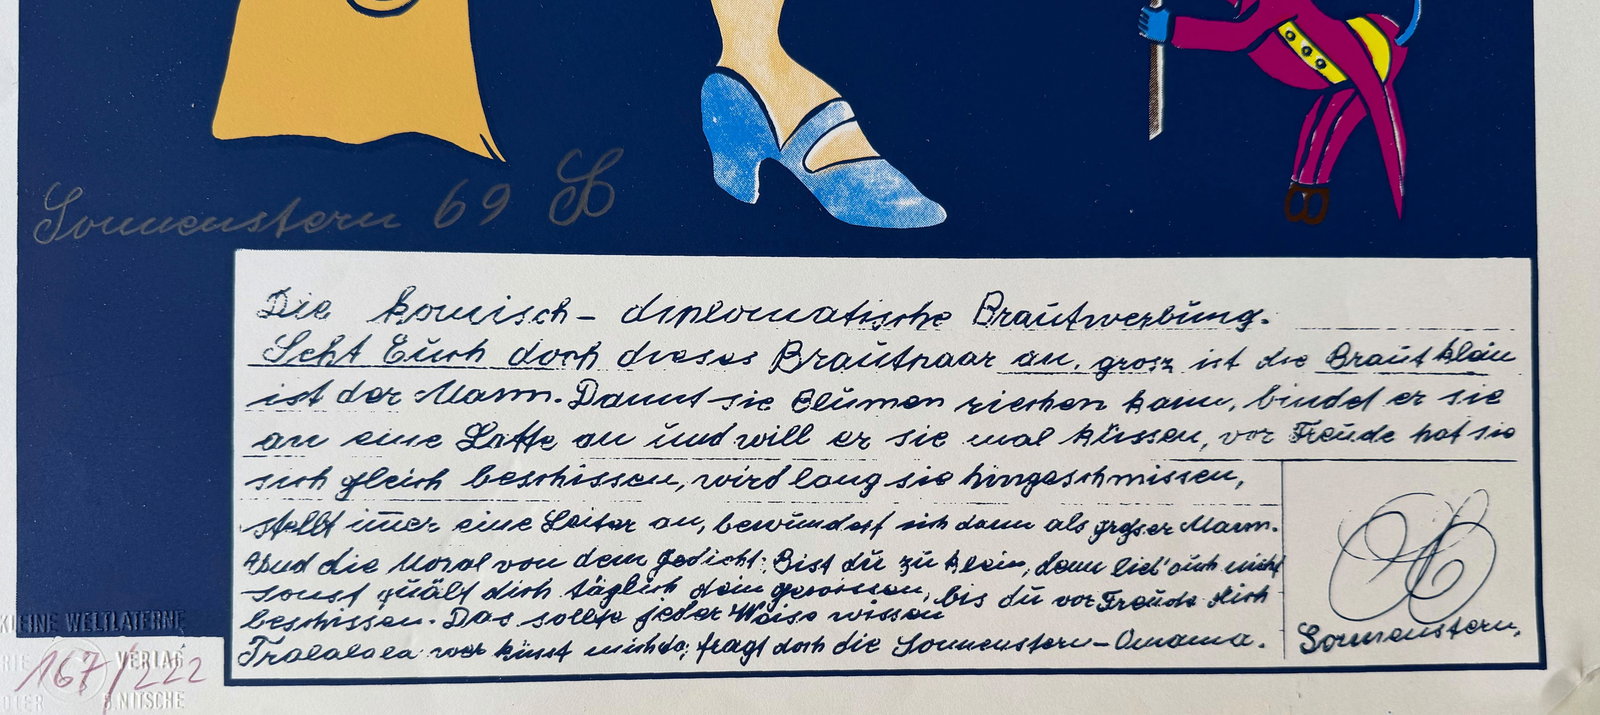 Sonnenstern 69
Die komisch- diplomatische Brautwerbung.
Seht Euch doch dieses Brautpaar an, grosz ist die Braut klein
ist der Mann. Damit sie Blumen riechen kann, bindet er sie
an eine Latte an und will er sie mal küssen, vor Freude hat sie
sich gleich beschissen, wird lang sie hingeschmissen,
stellt imer eine Leiter an, bewundert sich dann als Mann.
Und die Moral von dem gedicht: Bist du zu klein, dann lieb' auch nicht
sonst quält dich täglich dein gewissen, bis du vor Freude dich
beschissen. Das sollte jeder Waise wissen
Tralalala wer küsst fragt doch die Sonnenstern-Omama.
Sonnenstern.
KLEINE WELTLATERNE
VERLAG
167/222
B.NITSCHE